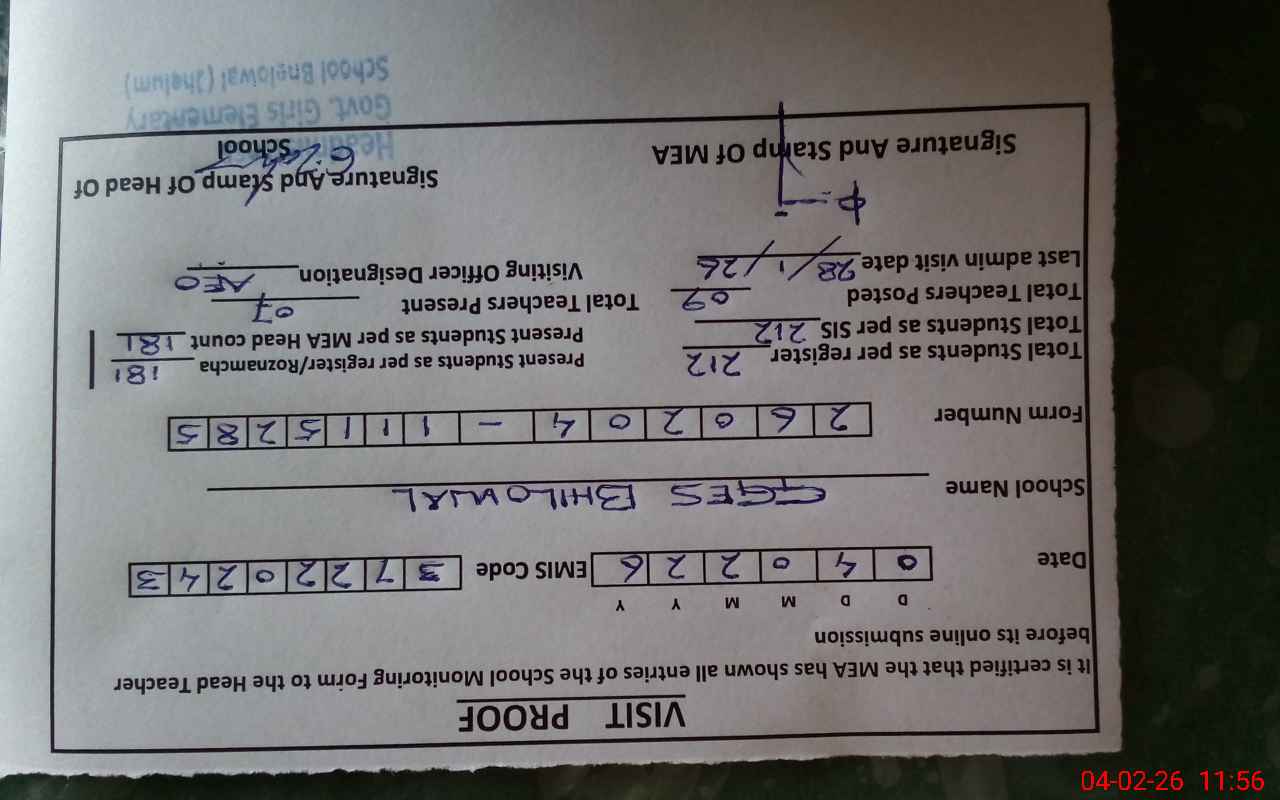 VISIT PROOF
It is certified that the MEA has shown all entries of the School Monitoring Form to the Head Teacher
before its online submission
D D M M Y Y
Date 0 4 0 2 2 6 EMIS Code 3 7 2 2 0 2 4 3
School Name GGES BHILOWAL
Form Number 2 6 0 2 0 4 - 1 1 1 5 2 8 5
Total Students as per register 212 Present Students as per register/Roznamcha 181
Total Students as per SIS 212 Present Students as per MEA Head count 181
Total Teachers Posted 09 Total Teachers Present 07
Last admin visit date 28/1/26 Visiting Officer Designation AEO
Signature And Stamp Of MEA Signature And Stamp Of Head Of
School
Govt. Girls Elementary
School Bhelowal (Jhelum)
04-02-26 11:56